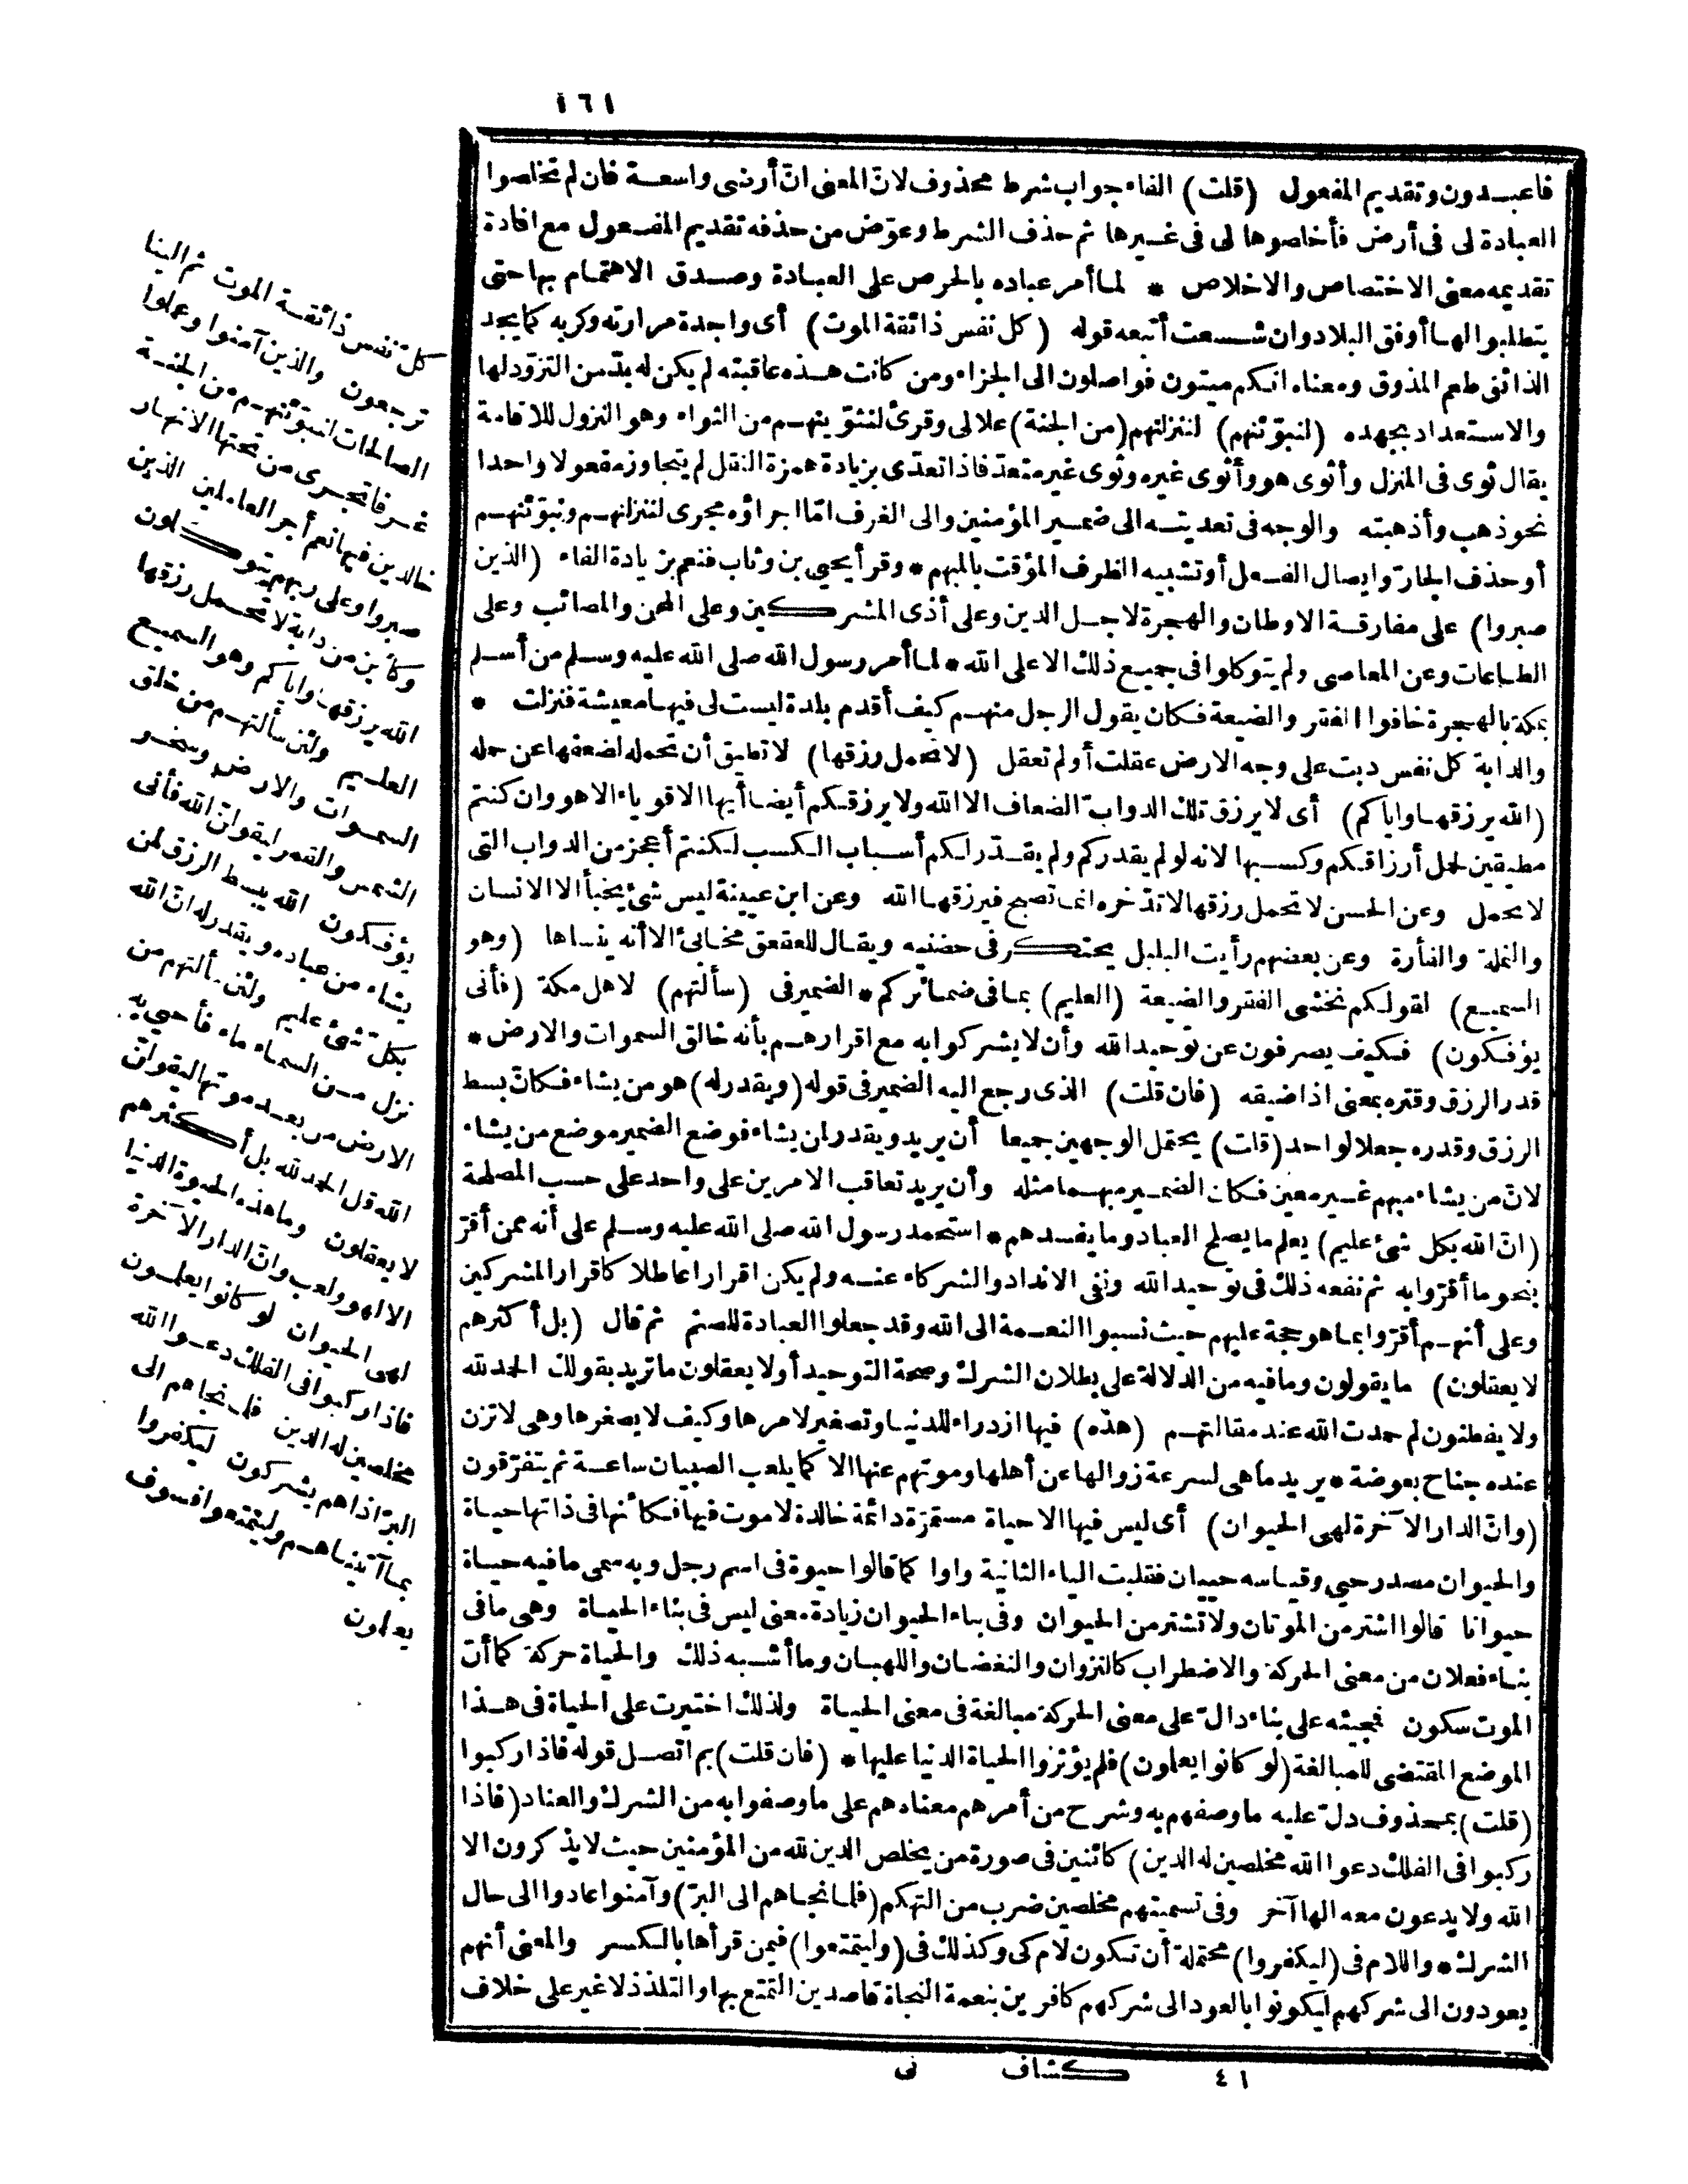 ١٦١
فاعبدون وتقديم المفعول (قلت) الفاء جواب شرط محذوف لانّ المعنى انّ أرضى واسعة فان لم تخلصوا
العبادة لى فى أرض فأخلصوها لى فى غيرها ثم حذف الشرط وعوّض من حذفه تقديم المفعول مع افادة
تقديمه معنى الاختصاص والاخلاص * لما أمر عباده بالحرص على العبادة وصدق الاهتمام بها حتى
يتطلبوا لها أوفق البلاد وان شسعت أتبعه قوله (كل نفس ذائقة الموت) أى واجدة مرارته وكربه كما يجد
الذائق طعم المذوق ومعناه انكم ميتون فواصلون الى الجزاء ومن كانت هذه عاقبته لم يكن له بدّ من التزوّد لها
والاستعداد بجهده (لنبوّئنهم) لننزلنهم (من الجنة) علالى وقرئ لنثوّينهم من الثواء وهو النزول للاقامة
يقال ثوى فى المنزل وأثوى هو وأثوى غيره وثوى غير متعدّ فاذا تعدّى بزيادة همزة النقل لم يتجاوز مفعولا واحدا
نحو ذهب وأذهبته والوجه فى تعديته الى ضمير المؤمنين والى الغرف امّا اجراؤه مجرى لننزلنهم ونبوّئنهم
أو حذف الجارّ وايصال الفعل أو تشبيه الظرف المؤقت بالمبهم * وقرأ يحيى بن وثاب فنعم بزيادة الفاء (الذين
صبروا) على مفارقة الاوطان والهجرة لاجل الدين وعلى أذى المشركين وعلى المحن والمصائب وعلى
الطاعات وعن المعاصى ولم يتوكلوا فى جميع ذلك الا على الله * لما أمر رسول الله صلى الله عليه وسلم من أسلم
بمكة بالهجرة خافوا الفقر والضيعة فكان يقول الرجل منهم كيف أقدم بلدة ليست لى فيها معيشة فنزلت *
والدابة كل نفس دبت على وجه الارض عقلت أو لم تعقل (لا تحمل رزقها) لا تطيق أن تحمله لضعفها عن حمله
(الله يرزقها واياكم) أى لا يرزق تلك الدوابّ الضعاف الا الله ولا يرزقكم أيضا أيها الاقوياء الا هو وان كنتم
مطيقين لحمل أرزاقكم وكسبها لانه لو لم يقدركم ولم يقدّر لكم أسباب الكسب لكنتم أعجز من الدواب التى
لا تحمل وعن الحسن لا تحمل رزقها لا تدّخره انما تصبح فيرزقها الله وعن ابن عيينة ليس شئ يخبأ الا الانسان
والنملة والفأرة وعن بعضهم رأيت البلبل يحتكر فى حضنيه ويقال للعقعق مخابئ الا أنه ينساها (وهو
السميع) لقولكم نخشى الفقر والضيعة (العليم) بما فى ضمائركم * الضمير فى (سألتهم) لاهل مكة (فأنى
يؤفكون) فكيف يصرفون عن توحيد الله وأن لا يشركوا به مع اقرارهم بأنه خالق السموات والارض *
قدر الرزق وقتره بمعنى اذا ضيقه (فان قلت) الذى رجع اليه الضمير فى قوله (ويقدر له) هو من يشاء فكانّ بسط
الرزق وقدره جعلا لواحد (قلت) يحتمل الوجهين جميعا أن يريد ويقدر لمن يشاء فوضع الضمير موضع من يشاء
لانّ من يشاء مبهم غير معين فكان الضمير مبهما مثله وأن يريد تعاقب الامرين على واحد على حسب المصلحة
(انّ الله بكل شئ عليم) يعلم ما يصلح العباد وما يفسدهم * استحمد رسول الله صلى الله عليه وسلم على أنه ممن أقرّ
بنحو ما أقرّوا به ثم نفعه ذلك فى توحيد الله ونفى الانداد والشركاء عنه ولم يكن اقرارا عاطلا كاقرار المشركين
وعلى أنهم أقرّوا بما هو حجة عليهم حيث نسبوا النعمة الى الله وقد جعلوا العبادة للصنم ثم قال (بل أكثرهم
لا يعقلون) ما يقولون وما فيه من الدلالة على بطلان الشرك وصحة التوحيد أو لا يعقلون ما تريد بقولك الحمد لله
ولا يفطنون لم حمدت الله عند مقالتهم (هذه) فيها ازدراء للدنيا وتصغير لامرها وكيف لا يصغرها وهى لا تزن
عنده جناح بعوضة * يريد ما هى لسرعة زوالها عن أهلها وموتهم عنها الا كما يلعب الصبيان ساعة ثم يتفرّقون
(وانّ الدار الآخرة لهى الحيوان) أى ليس فيها الا حياة مستمرّة دائمة خالدة لا موت فيها فكأنها فى ذاتها حياة
والحيوان مصدر حيي وقياسه حييان فقلبت الياء الثانية واوا كما قالوا حيوة فى اسم رجل وبه سمى ما فيه حياة
حيوانا قالوا اشتر من الموتان ولا تشتر من الحيوان وفى بناء الحيوان زيادة معنى ليس فى بناء الحياة وهى ما فى
بناء فعلان من معنى الحركة والاضطراب كالنزوان والنغضان واللهبان وما أشبه ذلك والحياة حركة كما أنّ
الموت سكون فمجيئه على بناء دالّ على معنى الحركة مبالغة فى معنى الحياة ولذلك اختيرت على الحياة فى هذا
الموضع المقتضى للمبالغة (لو كانوا يعلمون) فلم يؤثروا الحياة الدنيا عليها * (فان قلت) بم اتصل قوله فاذا ركبوا
(قلت) بمحذوف دلّ عليه ما وصفهم به وشرح من أمرهم معناه هم على ما وصفوا به من الشرك والعناد (فاذا
ركبوا فى الفلك دعوا الله مخلصين له الدين) كائنين فى صورة من يخلص الدين لله من المؤمنين حيث لا يذكرون الا
الله ولا يدعون معه الها آخر وفى تسميتهم مخلصين ضرب من التهكم (فلما نجاهم الى البرّ) وآمنوا عادوا الى حال
الشرك * واللام فى (ليكفروا) محتملة أن تكون لام كى وكذلك فى (وليتمتعوا) فيمن قرأها بالكسر والمعنى أنهم
يعودون الى شركهم ليكونوا بالعود الى شركهم كافرين بنعمة النجاة قاصدين التمتع بها والتلذذ لا غير على خلاف
كلّ نفس ذائقة الموت ثم الينا
ترجعون والذين آمنوا وعملوا
الصالحات لنبوّئنهم من الجنة
غرفا تجرى من تحتها الانهار
خالدين فيها نعم أجر العاملين الذين
صبروا وعلى ربهم يتوكلون
وكأين من دابة لا تحمل رزقها
الله يرزقها واياكم وهو السميع
العليم ولئن سألتهم من خلق
السموات والارض وسخر
الشمس والقمر ليقولنّ الله فأنى
يؤفكون الله يبسط الرزق لمن
يشاء من عباده ويقدر له انّ الله
بكلّ شئ عليم ولئن سألتهم من
نزل من السماء ماء فأحيى به
الارض من بعد موتها ليقولنّ
الله قل الحمد لله بل أكثرهم
لا يعقلون وما هذه الحيوة الدنيا
الا لهو ولعب وانّ الدار الآخرة
لهى الحيوان لو كانوا يعلمون
فاذا ركبوا فى الفلك دعوا الله
مخلصين له الدين فلما نجاهم الى
البرّ اذا هم يشركون ليكفروا
بما آتيناهم وليتمتعوا فسوف
يعلمون
٤١ كشاف نى